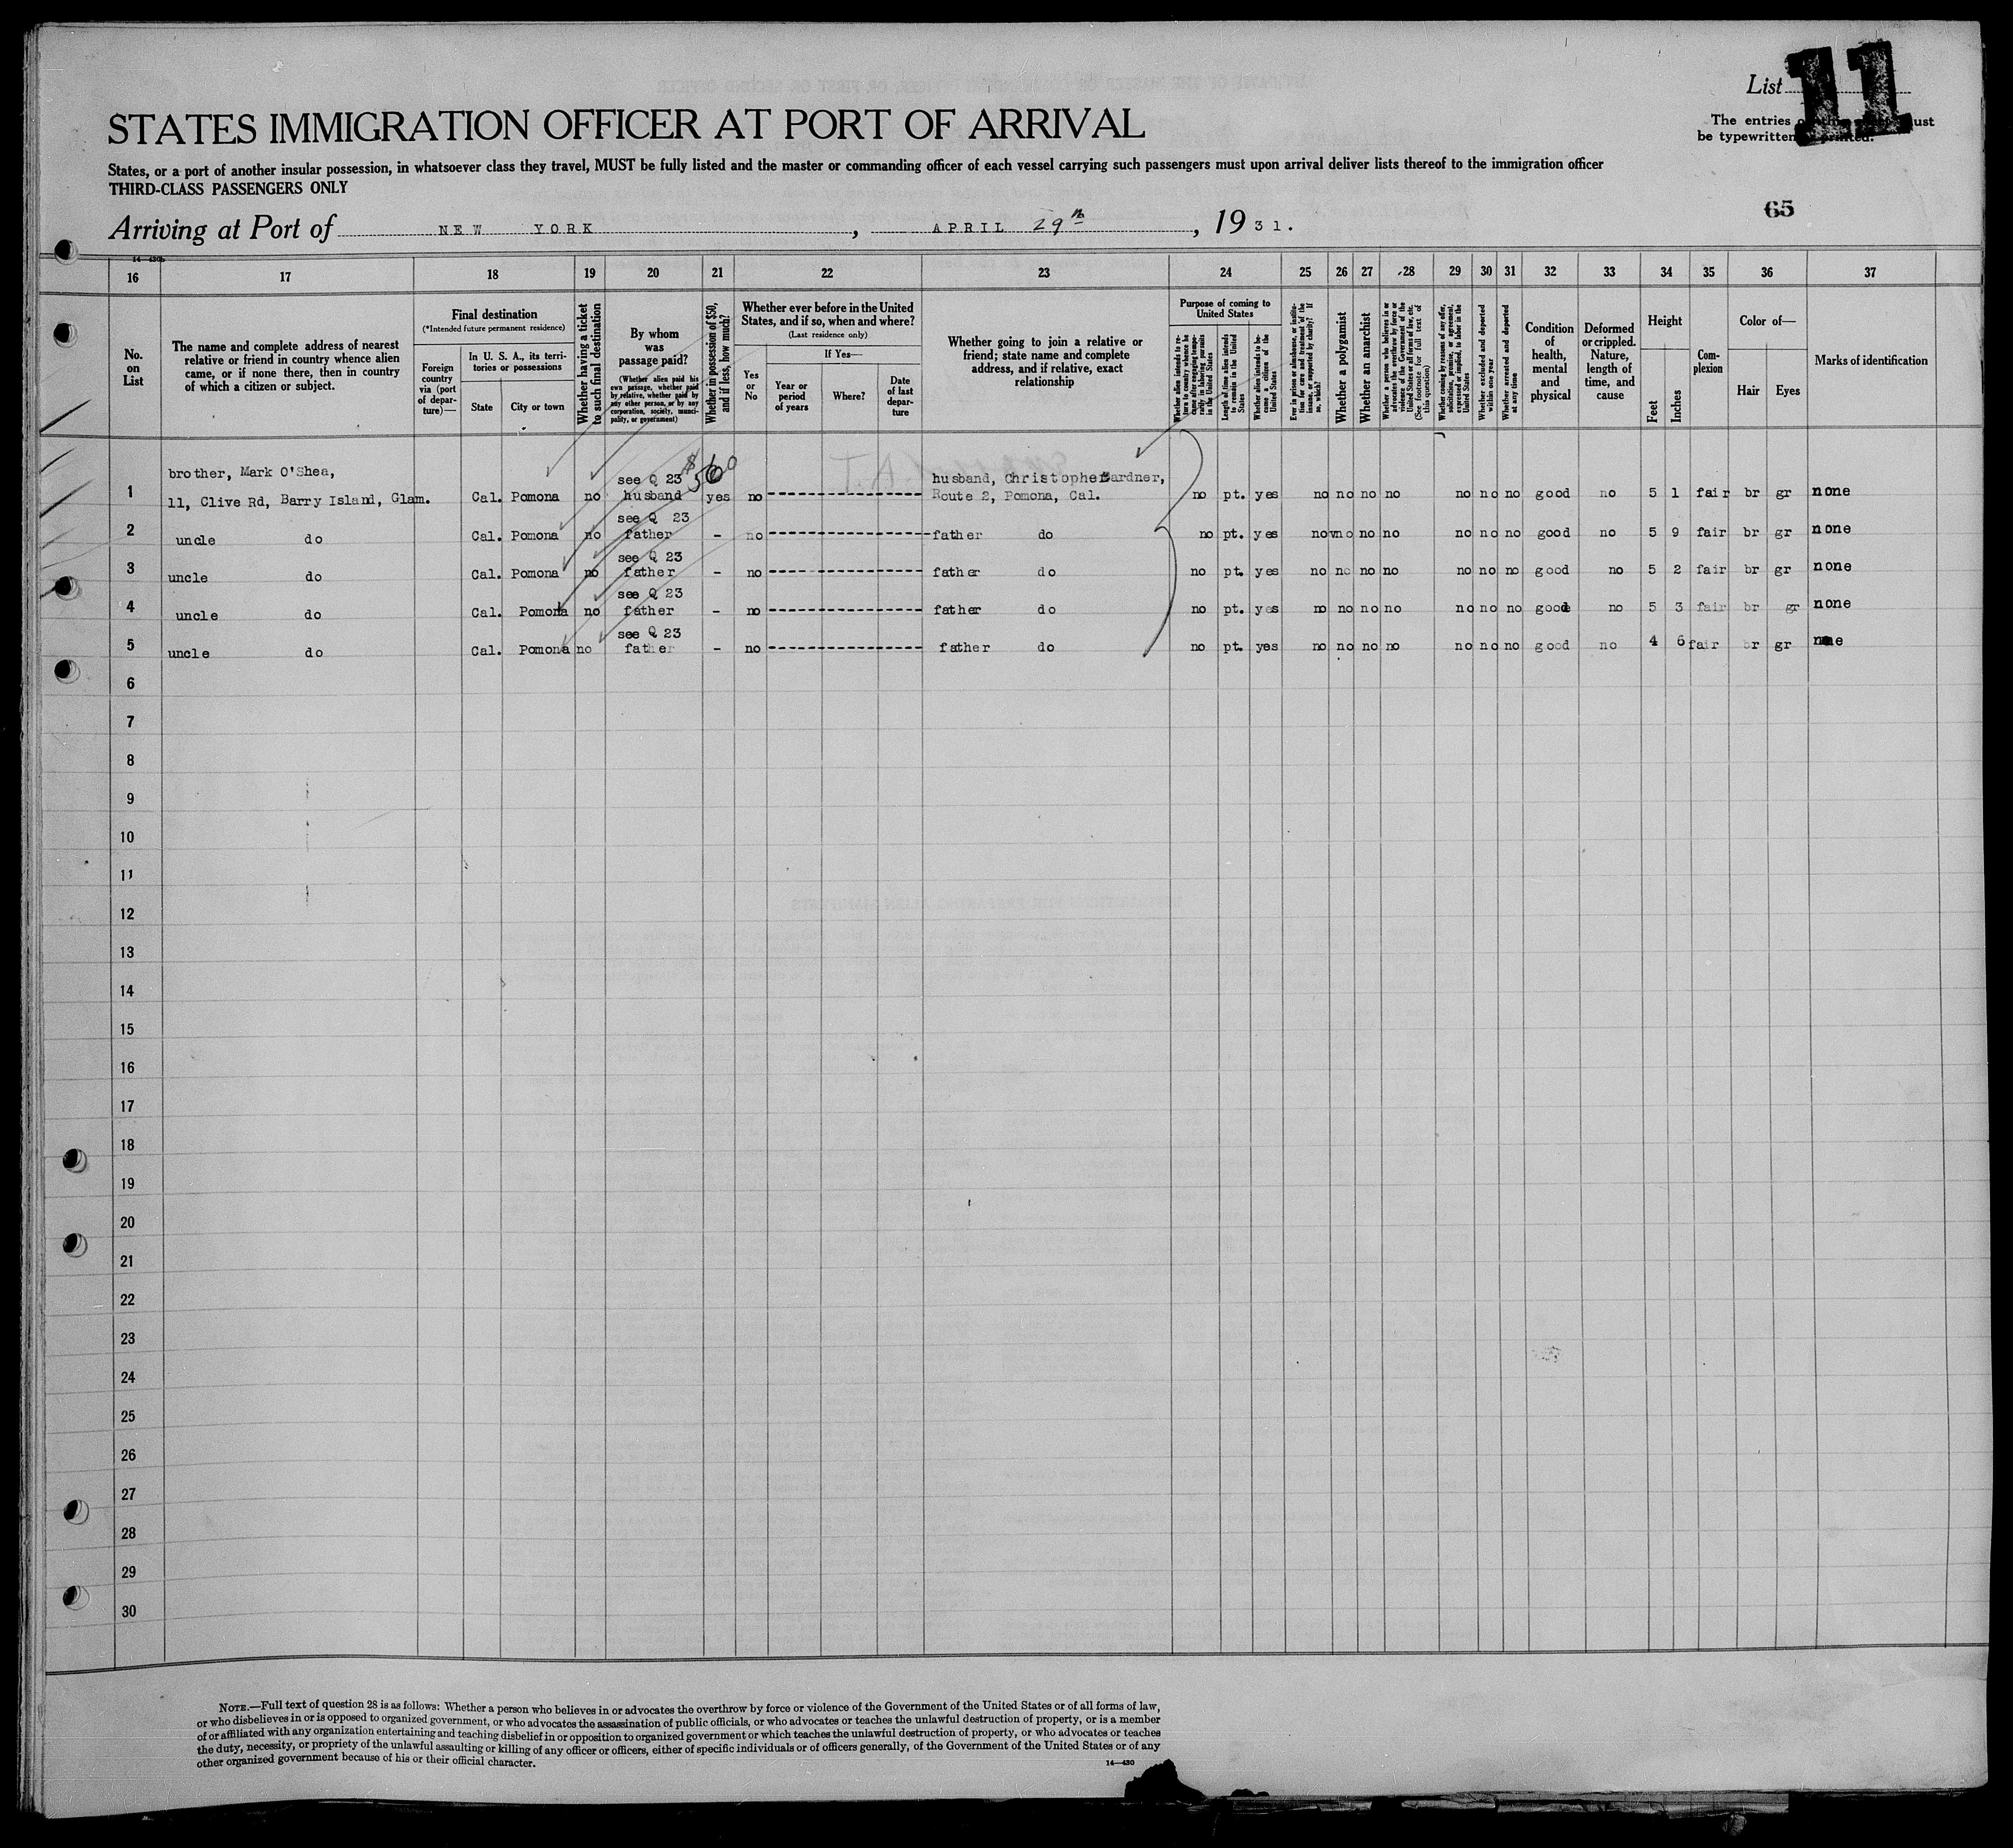 List 11
STATES IMMIGRATION OFFICER AT PORT OF ARRIVAL
The entries on this sheet must
be typewritten or printed.
States, or a port of another insular possession, in whatsoever class they travel, MUST be fully listed and the master or commanding officer of each vessel carrying such passengers must upon arrival deliver lists thereof to the immigration officer
THIRD-CLASS PASSENGERS ONLY
65
Arriving at Port of NEW YORK, APRIL 29th, 1931.
14-430b
16 17 18 19 20 21 22 23 24 25 26 27 28 29 30 31 32 33 34 35 36 37
No. on List
The name and complete address of nearest relative or friend in country whence alien came, or if none there, then in country of which a citizen or subject.
Final destination
(*Intended future permanent residence)
Foreign country via (port of departure)—
In U. S. A., its territories or possessions
State
City or town
Whether having a ticket to such final destination
By whom was passage paid?
(Whether alien paid his own passage, whether paid by relative, whether paid by any other person, or by any corporation, society, municipality, or government)
Whether in possession of $50, and if less, how much?
Whether ever before in the United States, and if so, when and where?
(Last residence only)
Yes or No
If Yes—
Year or period of years
Where?
Date of last departure
Whether going to join a relative or friend; state name and complete address, and if relative, exact relationship
Purpose of coming to United States
Whether alien intends to return to country whence he came after engaging temporarily in laboring pursuits in the United States
Length of time alien intends to remain in the United States
Whether alien intends to become a citizen of the United States
Ever in prison or almshouse, or institution for care and treatment of the insane, or supported by charity? If so, which?
Whether a polygamist
Whether an anarchist
Whether a person who believes in or advocates the overthrow by force or violence of the Government of the United States or all forms of law, etc. (See footnote for full text of this question)
Whether coming by reasons of any offer, solicitation, promise, or agreement, expressed or implied, to labor in the United States
Whether excluded and deported within one year
Whether arrested and deported at any time
Condition of health, mental and physical
Deformed or crippled. Nature, length of time, and cause
Height
Feet
Inches
Complexion
Color of—
Hair
Eyes
Marks of identification
brother, Mark O'Shea, see Q 23 $ husband, Christopher Gardner,
1 11, Clive Rd, Barry Island, Glam. Cal. Pomona no husband yes no Route 2, Pomona, Cal. no pt. yes no no no no no no no good no 5 1 fair br gr none
see Q 23
2 uncle do Cal. Pomona no father - no father do no pt. yes no no no no no no no good no 5 9 fair br gr none
see Q 23
3 uncle do Cal. Pomona no father - no father do no pt. yes no no no no no no no good no 5 2 fair br gr none
see Q 23
4 uncle do Cal. Pomona no father - no father do no pt. yes no no no no no no no good no 5 3 fair br gr none
see Q 23
5 uncle do Cal. Pomona no father - no father do no pt. yes no no no no no no no good no 4 6 fair br gr none
6
7
8
9
10
11
12
13
14
15
16
17
18
19
20
21
22
23
24
25
26
27
28
29
30
NOTE.—Full text of question 28 is as follows: Whether a person who believes in or advocates the overthrow by force or violence of the Government of the United States or of all forms of law,
or who disbelieves in or is opposed to organized government, or who advocates the assassination of public officials, or who advocates or teaches the unlawful destruction of property, or is a member
of or affiliated with any organization entertaining and teaching disbelief in or opposition to organized government or which teaches the unlawful destruction of property, or who advocates or teaches
the duty, necessity, or propriety of the unlawful assaulting or killing of any officer or officers, either of specific individuals or of officers generally, of the Government of the United States or of any
other organized government because of his or their official character.
14-430